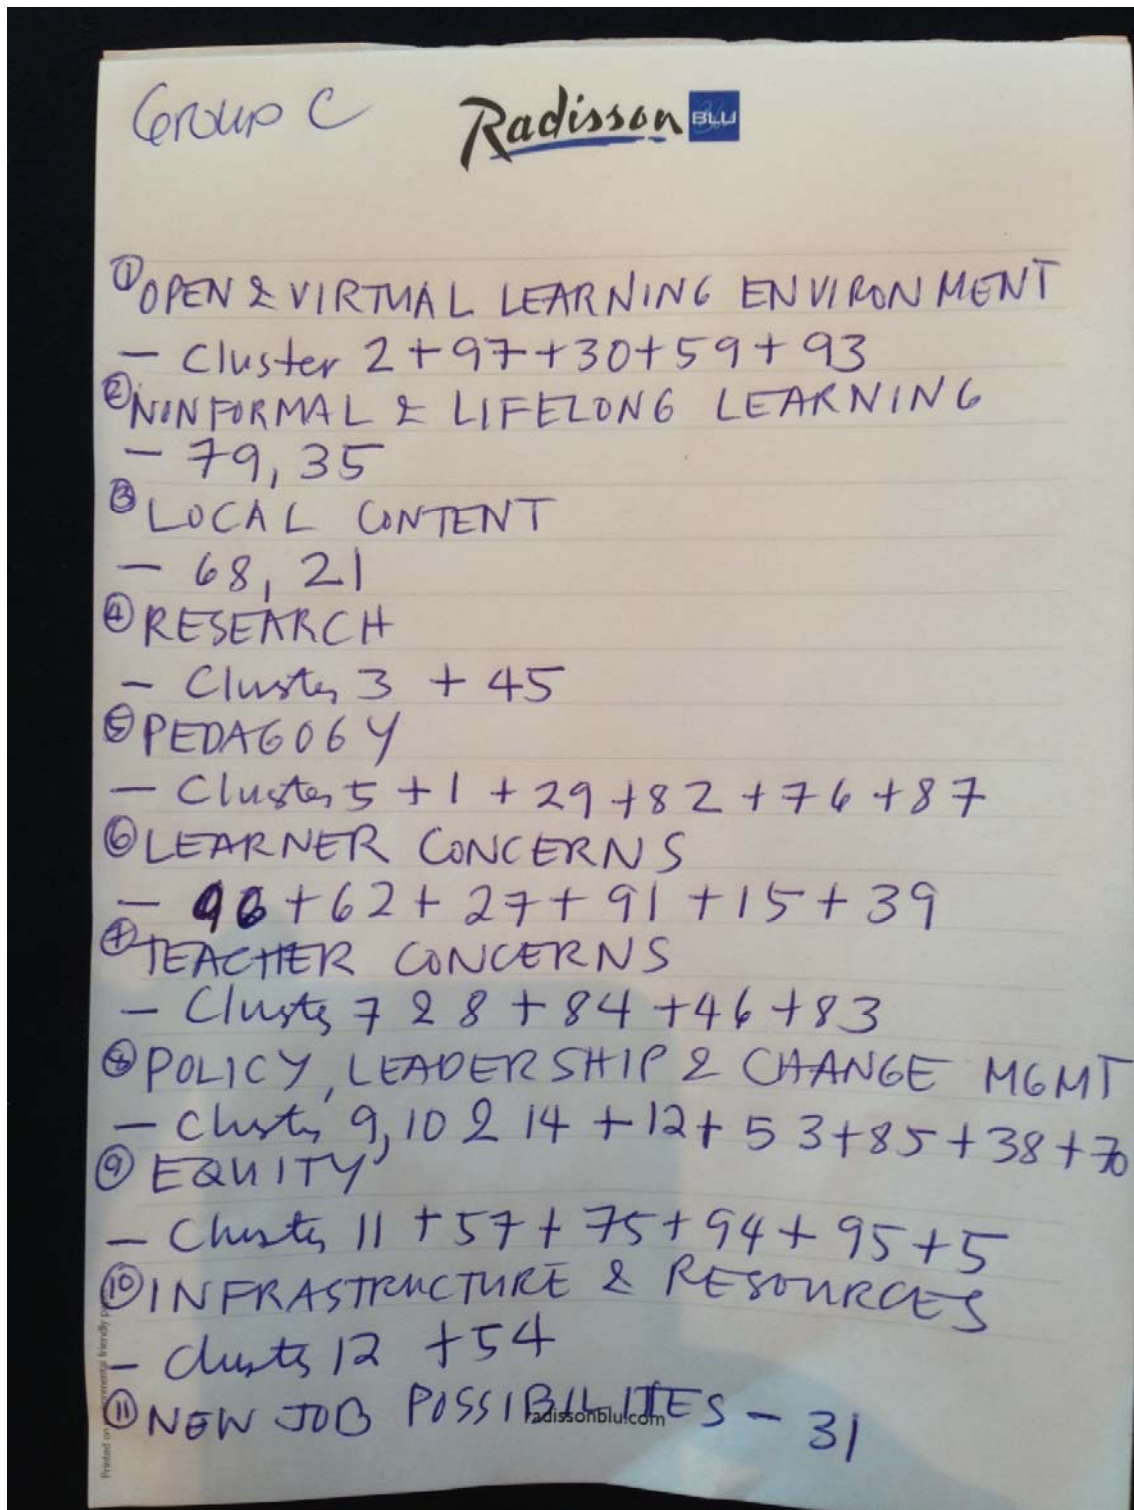 Group C
Radisson BLU
① OPEN & VIRTUAL LEARNING ENVIRONMENT
— Cluster 2+97+30+59+93
② NONFORMAL & LIFELONG LEARNING
— 79, 35
③ LOCAL CONTENT
— 68, 21
④ RESEARCH
— Cluster 3 + 45
⑤ PEDAGOGY
— Cluster 5 +1 +29 +82 +76 +87
⑥ LEARNER CONCERNS
— 96 +62+ 27+ 91 +15+ 39
⑦ TEACHER CONCERNS
— Cluster 7 & 8 + 84 +46 +83
⑧ POLICY, LEADERSHIP & CHANGE MGMT
— Cluster 9, 10 & 14 +12+ 53+85+38+70
⑨ EQUITY
— Cluster 11 +57+ 75+ 94+ 95+5
⑩ INFRASTRUCTURE & RESOURCES
— cluster 12 +54
⑪ NEW JOB POSSIBILITES — 31
radissonblu.com
Printed on